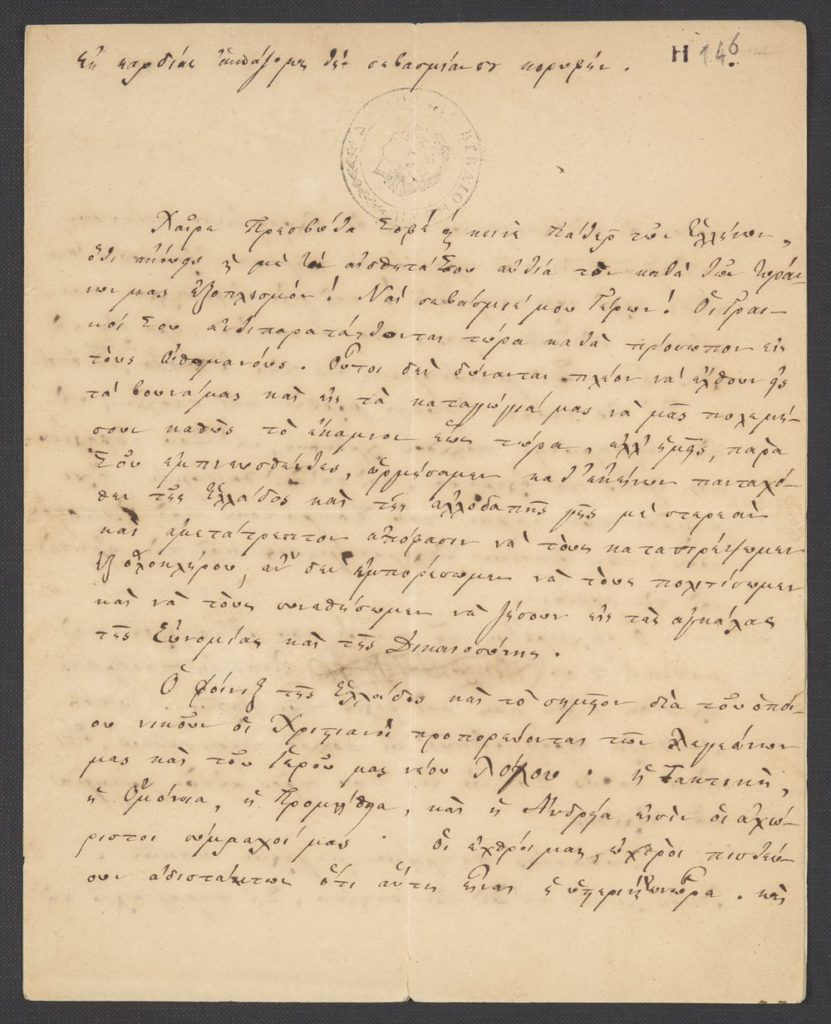 Ἐκ καρδίας ἀσπάζομαι τὴν σεβασμίαν σου κορυφήν.
Η 146.
Χαῖρε Πρεσβύτα Σοφὲ καὶ κοινὲ Πάτερ τῶν Ἑλλήνων,
ὅτι ἀκούεις καὶ μὲ τὰ αἰσθητά Σου αὐτία τὸν κατὰ τῶν τυράν-
νων μας ἐξοπλισμόν! Ναὶ σεβάσμιέ μου Γέρων! Οἱ Γραι-
κοί Σου ἀντιπαρατάττονται τώρα κατὰ πρόσωπον εἰς
τοὺς Ὀθωμανούς. Οὗτοι δὲν δύνανται πλέον νὰ ἔλθουν εἰς
τὰ βουνά μας καὶ εἰς τὰ καταγώγιά μας νὰ μᾶς πολεμή-
σουν καθὼς τὸ ἔκαμνον ἕως τώρα, ἀλλ' ἡμεῖς, παρὰ
Σοῦ ἐμπνευσθέντες, ὡρμήσαμεν κατ' ἐκείνων πανταχό-
θεν τῆς Ἑλλάδος καὶ τῆς ἀλλοδαπῆς γῆς μὲ στερεὰν
καὶ ἀμετάτρεπτον ἀπόφασιν νὰ τοὺς καταστρέψωμεν
ἐξ ὁλοκλήρου, ἂν δὲν ἐμπορέσωμεν νὰ τοὺς πολιτίσωμεν
καὶ νὰ τοὺς συνηθίσωμεν νὰ ζήσουν εἰς τὰς ἀγκάλας
τῆς Εὐνομίας καὶ τῆς Δικαιοσύνης.
Ὁ φοίνιξ τῆς Ἑλλάδος καὶ τὸ σημεῖον διὰ τοῦ ὁποί-
ου νικοῦν οἱ Χριστιανοὶ προπορεύονται τῶν λεγεώνων
μας καὶ τοῦ Ἱεροῦ μας νέου Λόχου. ἡ Τακτική,
ἡ Ὁμόνοια, ἡ Προμήθεια, καὶ ἡ Ἀνδρεία εἰσὶν οἱ ἀχώ-
ριστοι σύμμαχοί μας. οἱ ἐχθροί μας, ἐχθροὶ πιστεύ-
ουν ἀδιστάκτως ὅτι αὕτη εἶναι ἡ ὑστερινή των ὥρα. καὶ